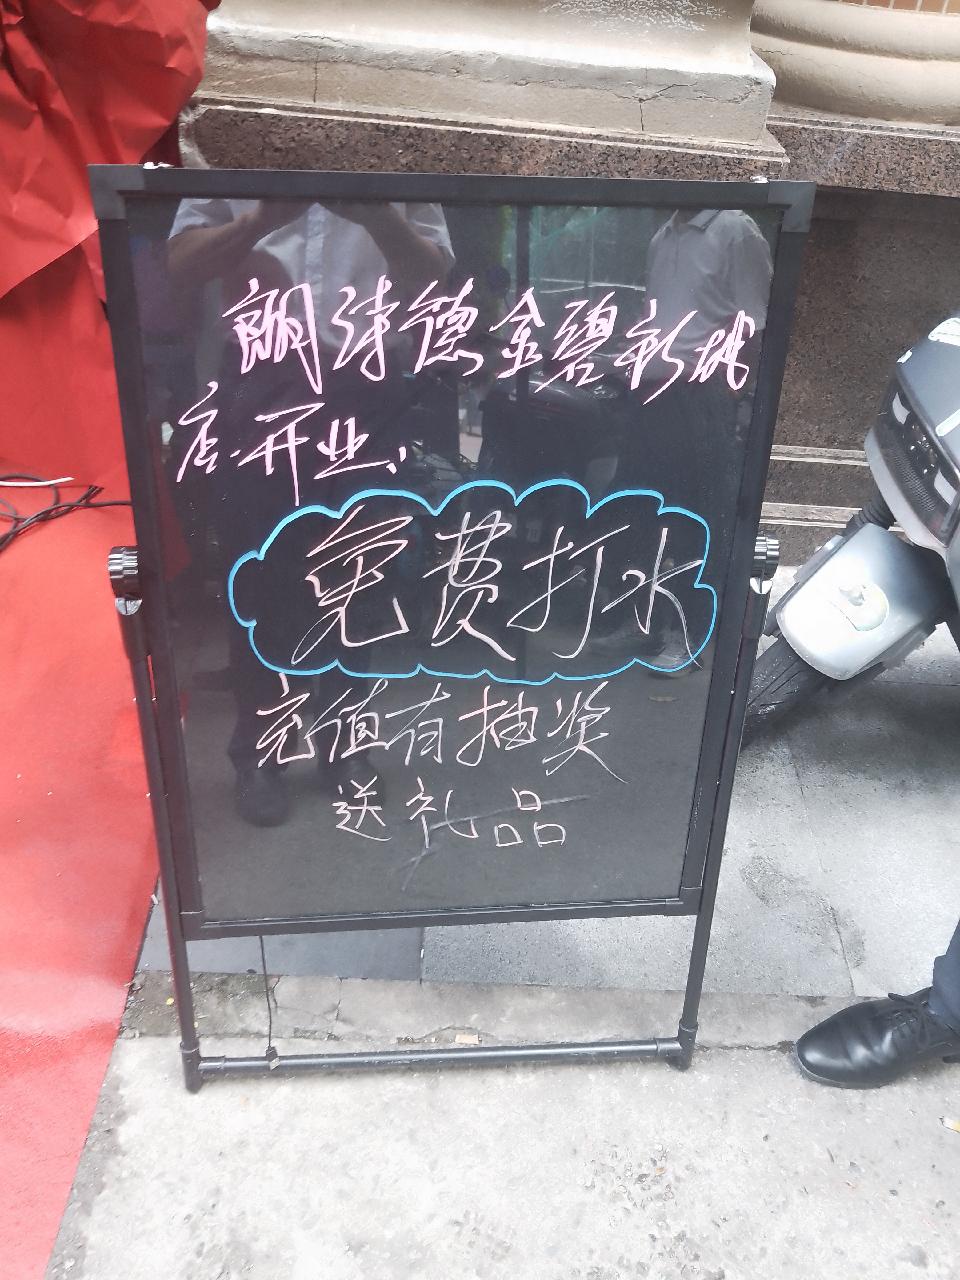 朗诗德金碧新城
店开业!
免费打水
充值有抽奖
送礼品